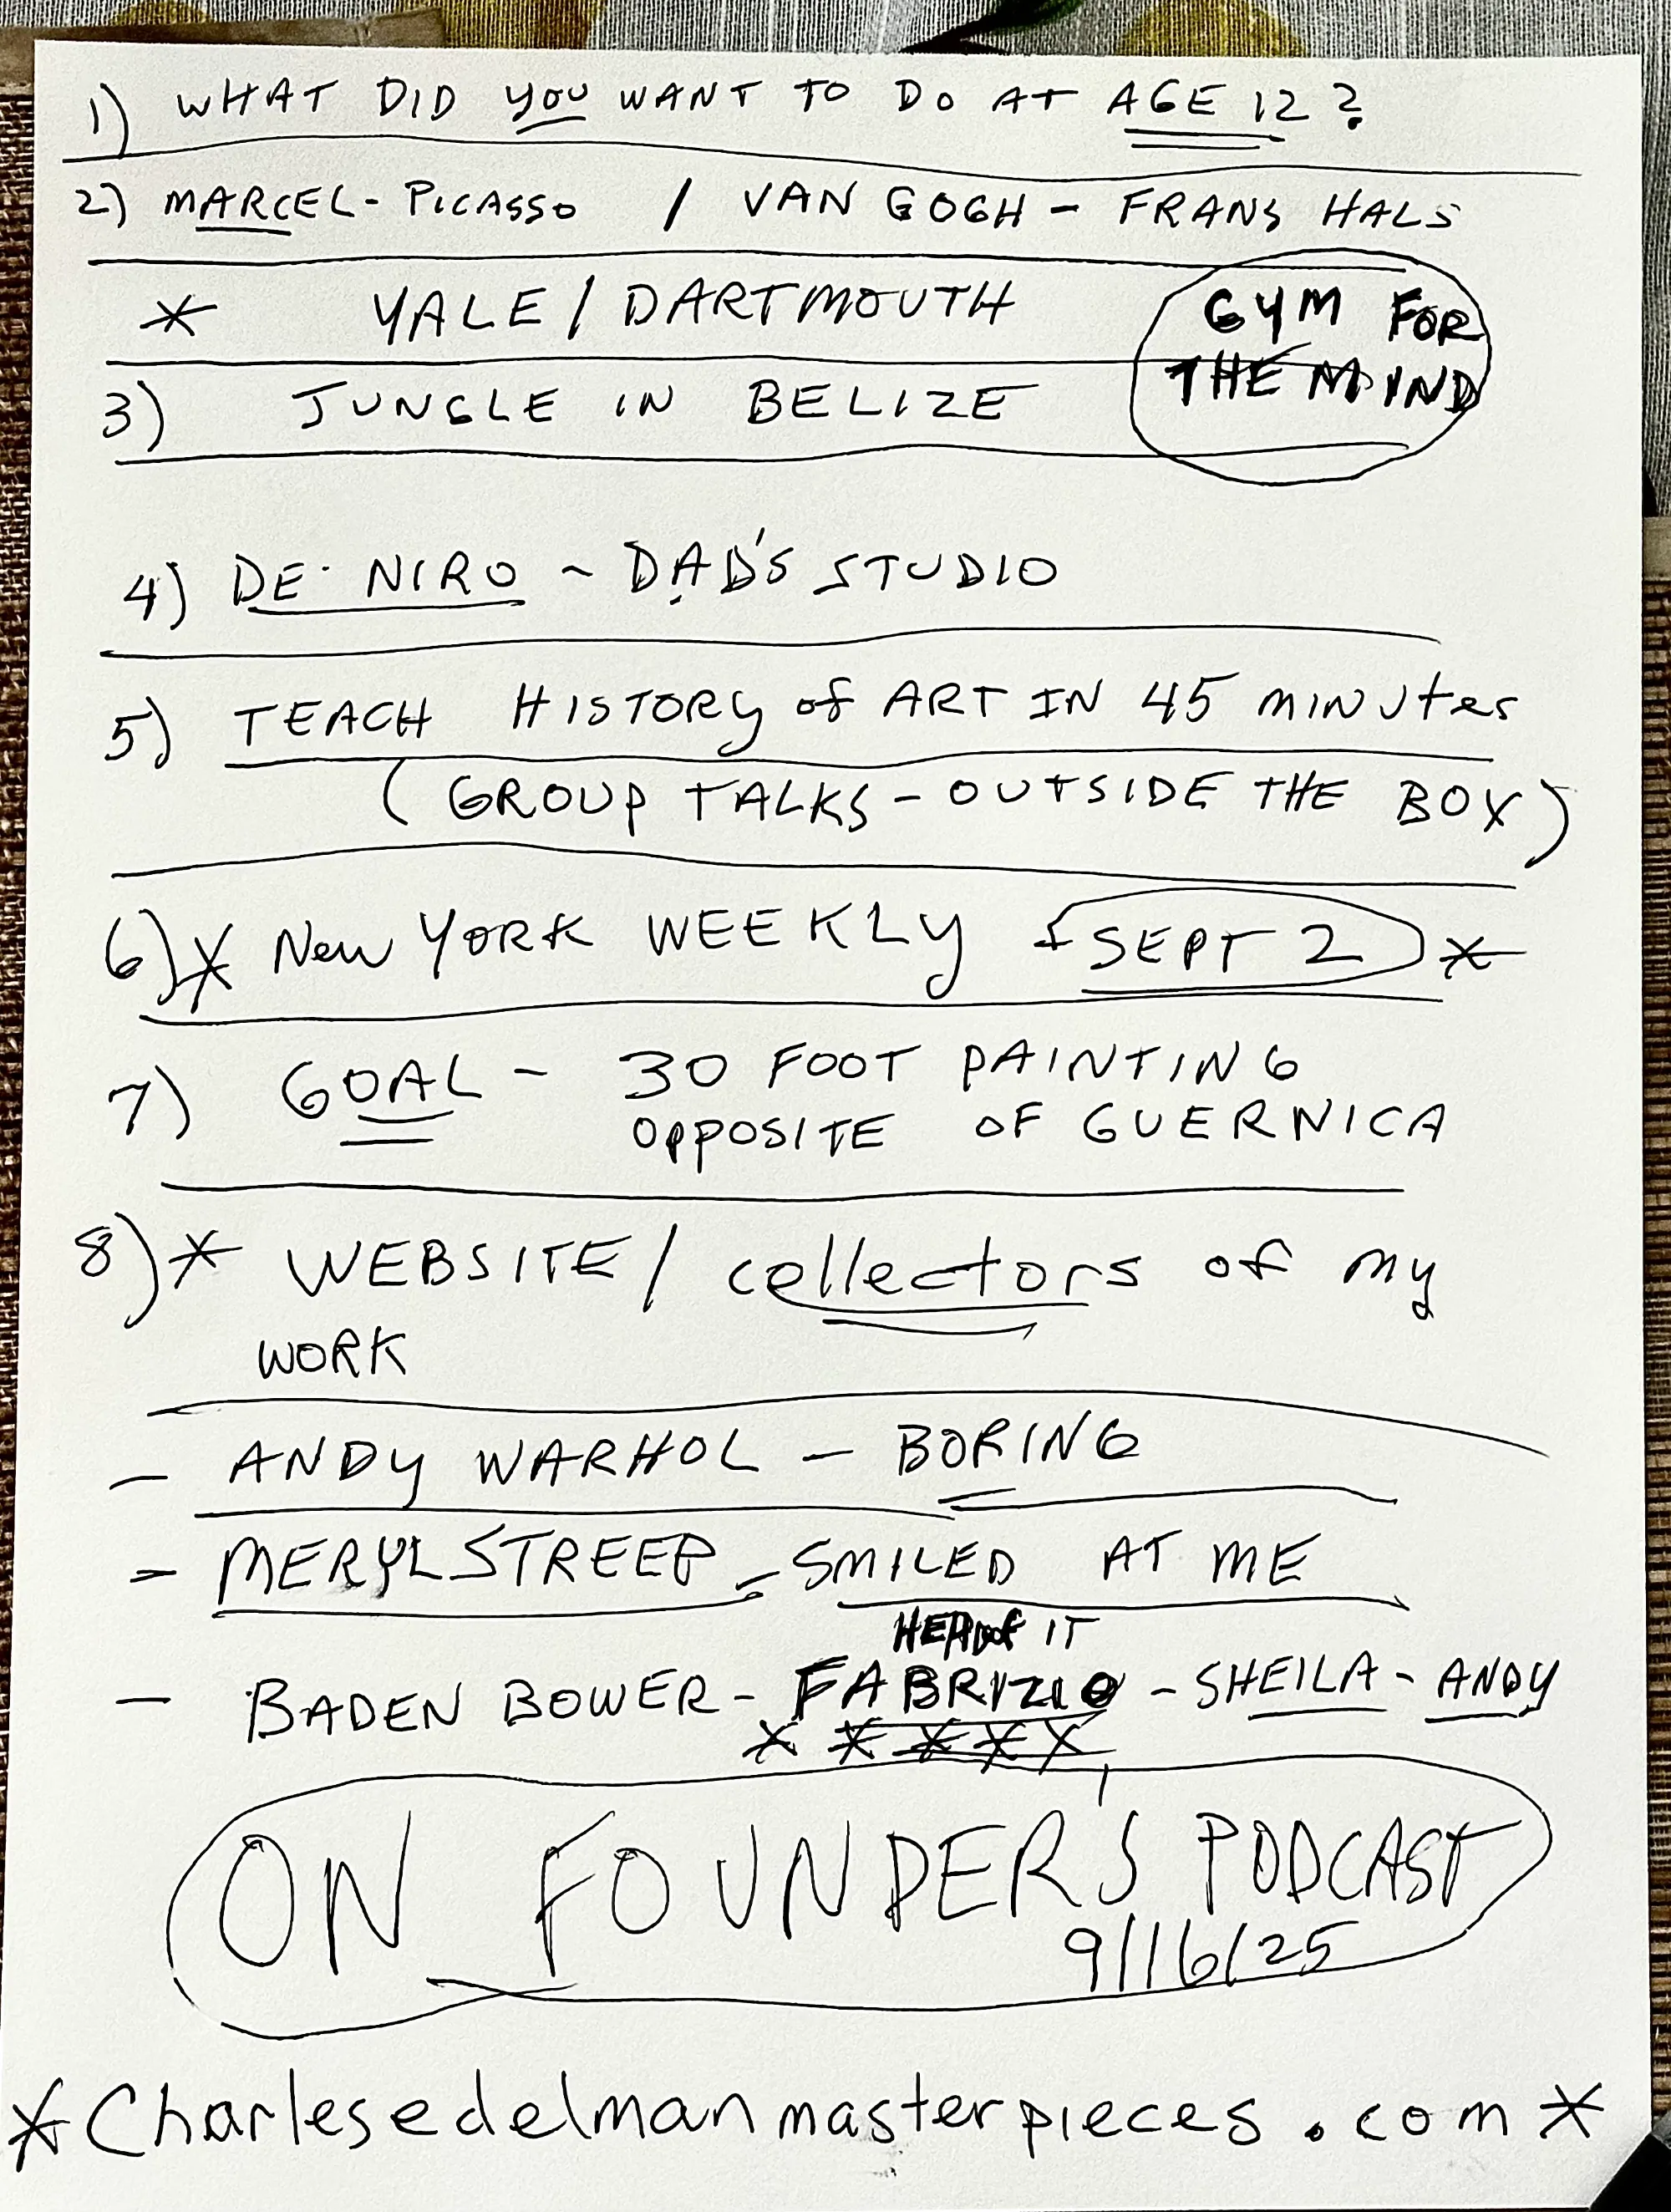 1) WHAT DID YOU WANT TO DO AT AGE 12?
2) MARCEL - PICASSO / VAN GOGH - FRANS HALS
* YALE / DARTMOUTH
GYM FOR
THE MIND
3) JUNGLE IN BELIZE
4) DE NIRO ~ DAD'S STUDIO
5) TEACH HISTORY of ART IN 45 MINUtes
(GROUP TALKS - OUTSIDE THE BOX)
6) * New YORK WEEKLY SEPT 2 *
7) GOAL - 30 FOOT PAINTING
OPPOSITE OF GUERNICA
8) * WEBSITE / collectors of my
WORK
- ANDY WARHOL - BORING
- MERYL STREEP - SMILED AT ME
HEAD of IT
- BADEN BOWER - FABRIZIO - SHEILA - ANDY
* * * * *
ON FOUNDER'S PODCAST
9/16/25
* Charlesedelmanmasterpieces.com *